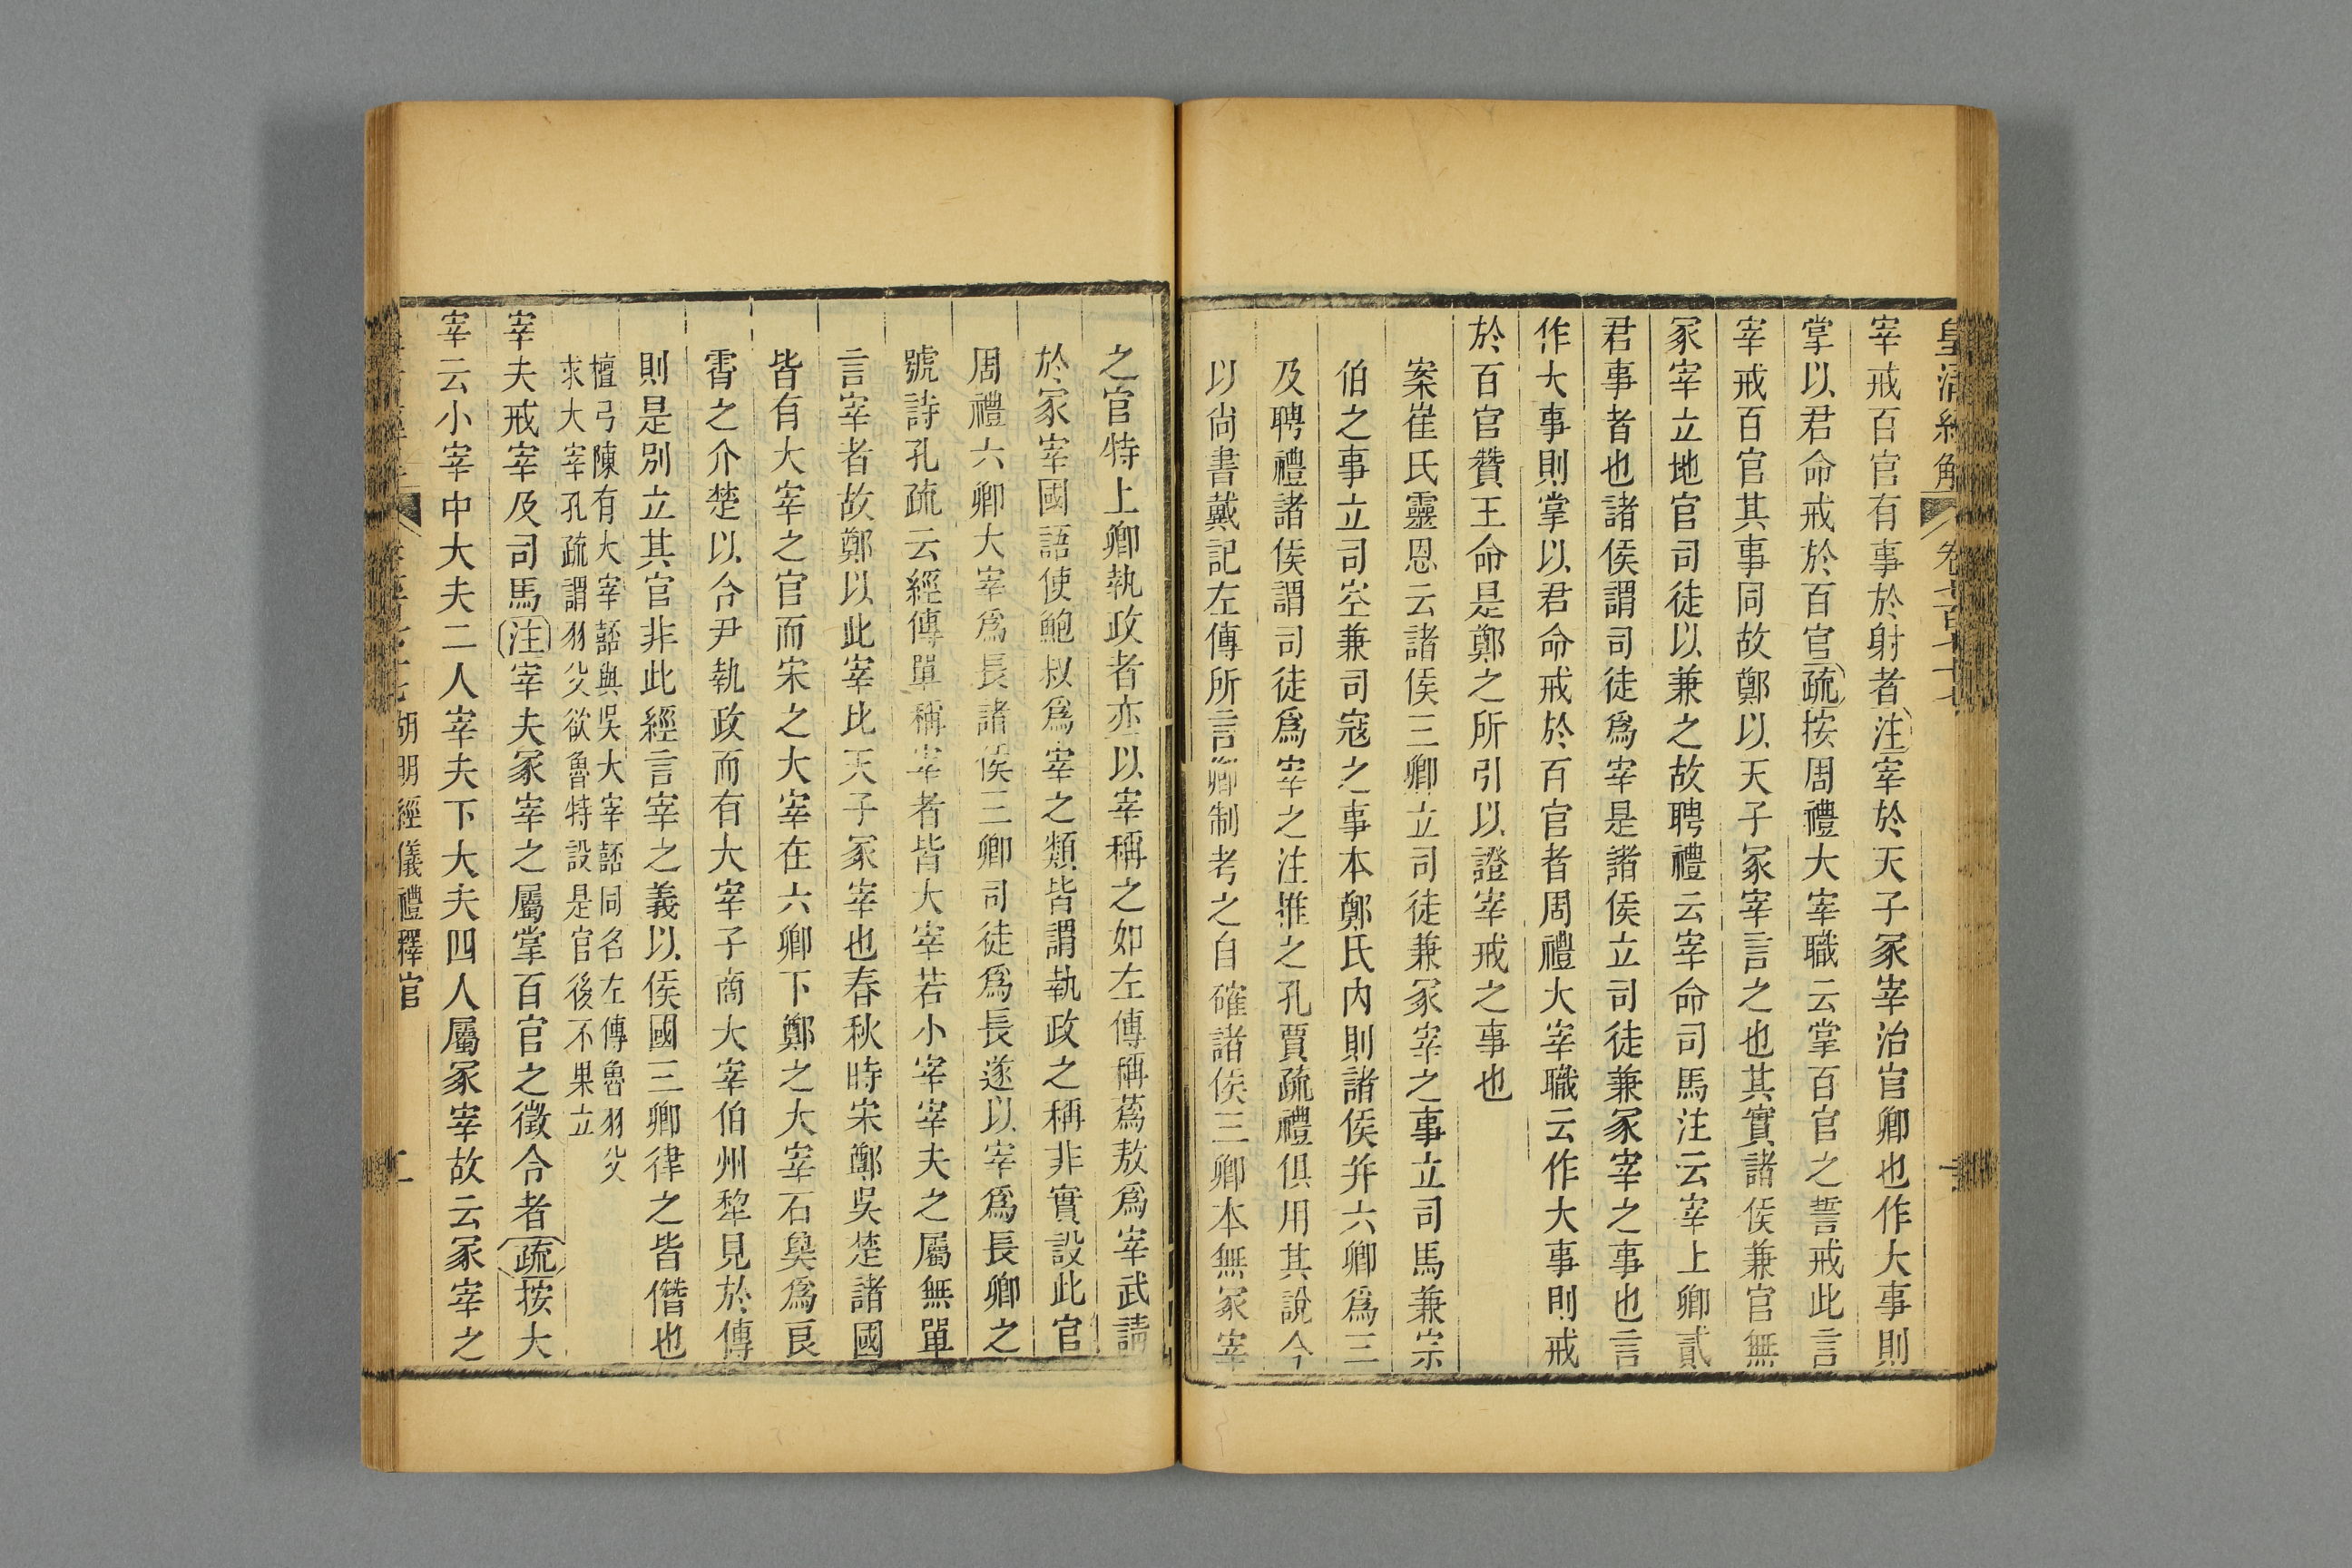 皇清經解 卷七百七十七
宰戒百官有事於射者注宰於天子冢宰治官卿也作大事則
掌以君命戒於百官疏按周禮大宰職云掌百官之誓戒此言
宰戒百官其事同故鄭以天子冢宰言之也其實諸侯兼官無
冢宰立地官司徒以兼之故聘禮云宰命司馬注云宰上卿貳
君事者也諸侯謂司徒爲宰是諸侯立司徒兼冢宰之事也言
作大事則掌以君命戒於百官者周禮大宰職云作大事則戒
於百官贊王命是鄭之所引以證宰戒之事也
案崔氏靈恩云諸侯三卿立司徒兼冢宰之事立司馬兼宗
伯之事立司空兼司寇之事本鄭氏內則諸侯并六卿爲三
及聘禮諸侯謂司徒爲宰之注推之孔賈疏禮俱用其說今
以尚書戴記左傳所言卿制考之自確諸侯三卿本無冢宰
之官特上卿執政者亦以宰稱之如左傳稱蒍敖爲宰武請
於冢宰國語使鮑叔爲宰之類皆謂執政之稱非實設此官
周禮六卿大宰爲長諸侯三卿司徒爲長遂以宰爲長卿之
號詩孔疏云經傳單稱宰者皆大宰若小宰宰夫之屬無單
言宰者故鄭以此宰比天子冢宰也春秋時宋鄭吳楚諸國
皆有大宰之官而宋之大宰在六卿下鄭之大宰石㚟爲良
霄之介楚以令尹執政而有大宰子商大宰伯州犂見於傳
則是別立其官非此經言宰之義以侯國三卿律之皆僭也
檀弓陳有大宰嚭與吳大宰嚭同名左傳魯羽父
求大宰孔疏謂羽父欲魯特設是官後不果立
宰夫戒宰及司馬注宰夫冢宰之屬掌百官之徵令者疏按大
宰云小宰中大夫二人宰夫下大夫四人屬冢宰故云冢宰之
胡明經儀禮釋官 二